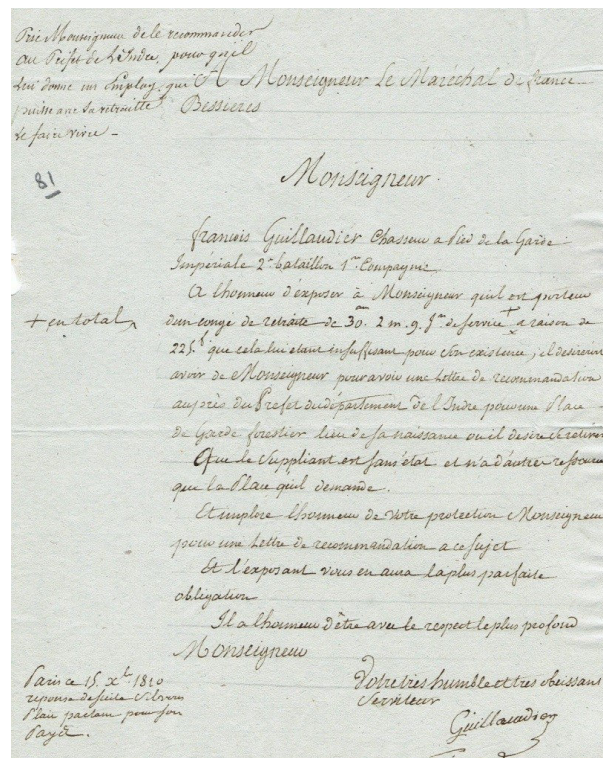 Prie Monseigneur de le recommander
au Préfet de L'Indre, pour qu'il
lui donne un Employ, qui
puisse avec sa retraitte
le faire vivre -
A Monseigneur Le Maréchal de france
Bessieres
81
Monseigneur
françois Guillaudier Chasseur a Pied de la Garde
Impériale 2e bataillon 1re Compagnie
A lhonneur d'exposer à Monseigneur quil est porteur
+ en total
dun congé de retraite de 30. an 2 m. 9. Jrs de service + a raison de
225.f que cela lui etant insuffisant pour son existence, il desireroit
avoir de Monseigneur pour avoir une Lettre de recommandation
auprès du Prefet du département de l'Indre pour une Place
de Garde forestier lieu de sa naissance ou il desire se retirer
Que le Suppliant est sans état et n'a d'autre ressource
que la Place quil demande.
Et implore lhonneur de votre protection Monseigneur
pour une Lettre de recommandation a ce sujet
Et l'exposant vous en aura la plus parfaite
obligation
Il a lhonneur d'être avec le respect le plus profond
Monseigneur
Votre tres humble et tres obeissant
Serviteur
Guillaudier
Paris ce 15 Xbre 1810
reponse de suite
partant pour son
Payis.